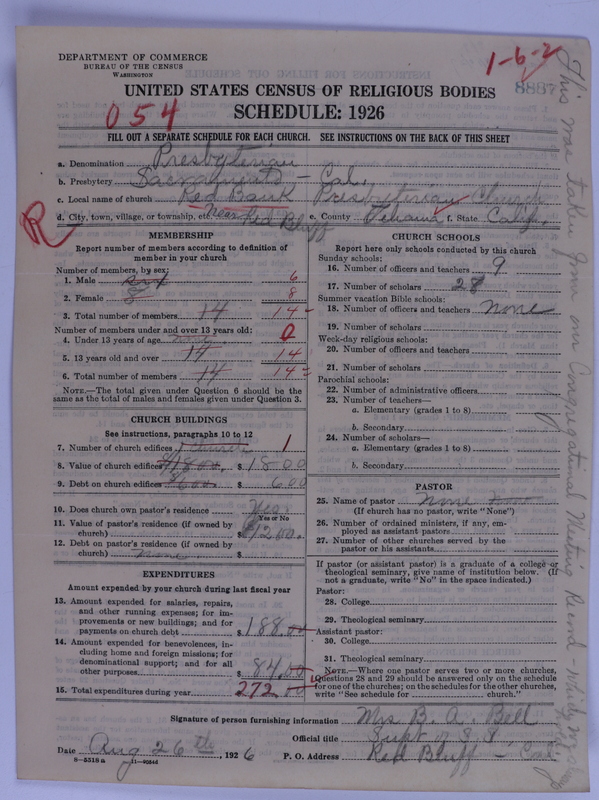 DEPARTMENT OF COMMERCE
BUREAU OF THE CENSUS
WASHINGTON
1-6-2
UNITED STATES CENSUS OF RELIGIOUS BODIES
SCHEDULE: 1926
054
FILL OUT A SEPARATE SCHEDULE FOR EACH CHURCH. SEE INSTRUCTIONS ON THE BACK OF THIS SHEET
a. Denomination Presbyterian
b. Presbytery Sacramento - Cal.
c. Local name of church Red Bank Presbyterian Church
d. City, town, village, or township, etc. near Red Bluff e. County Tehama f. State Calif.
R
MEMBERSHIP
Report number of members according to definition of member in your church
Number of members, by sex:
1. Male six 6
2. Female 8 8
3. Total number of members 14 14
Number of members under and over 13 years old:
4. Under 13 years of age none 0
5. 13 years old and over 14 14
6. Total number of members 14 14
NOTE.—The total given under Question 6 should be the same as the total of males and females given under Question 3.
CHURCH BUILDINGS
See instructions, paragraphs 10 to 12
7. Number of church edifices 1 church 1
8. Value of church edifices $1800. $ 1800
9. Debt on church edifices $600. $ 600
10. Does church own pastor's residence Yes.
Yes or No
11. Value of pastor's residence (if owned by church) $ $1200.
12. Debt on pastor's residence (if owned by church) none $
EXPENDITURES
Amount expended by your church during last fiscal year
13. Amount expended for salaries, repairs, and other running expenses; for improvements or new buildings; and for payments on church debt $ 188.00
14. Amount expended for benevolences, including home and foreign missions; for denominational support; and for all other purposes $ 84.00
15. Total expenditures during year 272.00
CHURCH SCHOOLS
Report here only schools conducted by this church
Sunday schools:
16. Number of officers and teachers 9
17. Number of scholars 28
Summer vacation Bible schools:
18. Number of officers and teachers None
19. Number of scholars
Week-day religious schools:
20. Number of officers and teachers
21. Number of scholars
Parochial schools:
22. Number of administrative officers
23. Number of teachers—
a. Elementary (grades 1 to 8)
b. Secondary
24. Number of scholars—
a. Elementary (grades 1 to 8)
b. Secondary
PASTOR
25. Name of pastor None
(If church has no pastor, write "None")
26. Number of ordained ministers, if any, employed as assistant pastors
27. Number of other churches served by the pastor or his assistants
If pastor (or assistant pastor) is a graduate of a college or theological seminary, give name of institution below. (If not a graduate, write "No" in the space indicated.)
Pastor:
28. College
29. Theological seminary
Assistant pastor:
30. College
31. Theological seminary
NOTE.—Where one pastor serves two or more churches, Questions 28 and 29 should be answered only on the schedule for one of the churches; on the schedules for the other churches, write "See schedule for church."
Signature of person furnishing information Mrs B. A. Bell
Official title Supt of S.S.
Date Aug 26th, 1926 P. O. Address Red Bluff -
8-5518a 11-90546
This was taken from our Congregational Meeting Record -